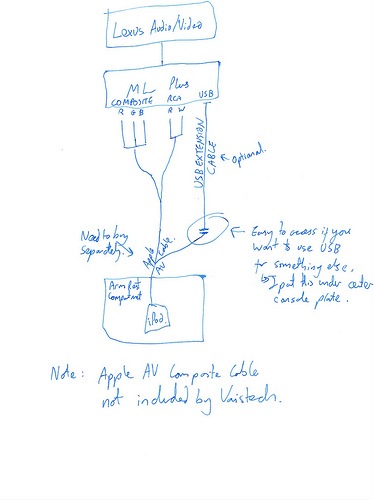 Lexus Audio/Video
ML Plus
COMPOSITE RCA USB
R G B R W
USB EXTENSION
CABLE
optional.
Need to buy
separately.
Apple
AV Cable.
Easy to access if you
want to use USB
for something else,
I put this under center
console plate.
Arm Rest
Compartment
iPod
Note: Apple AV Composite Cable
not included by Vaistech.